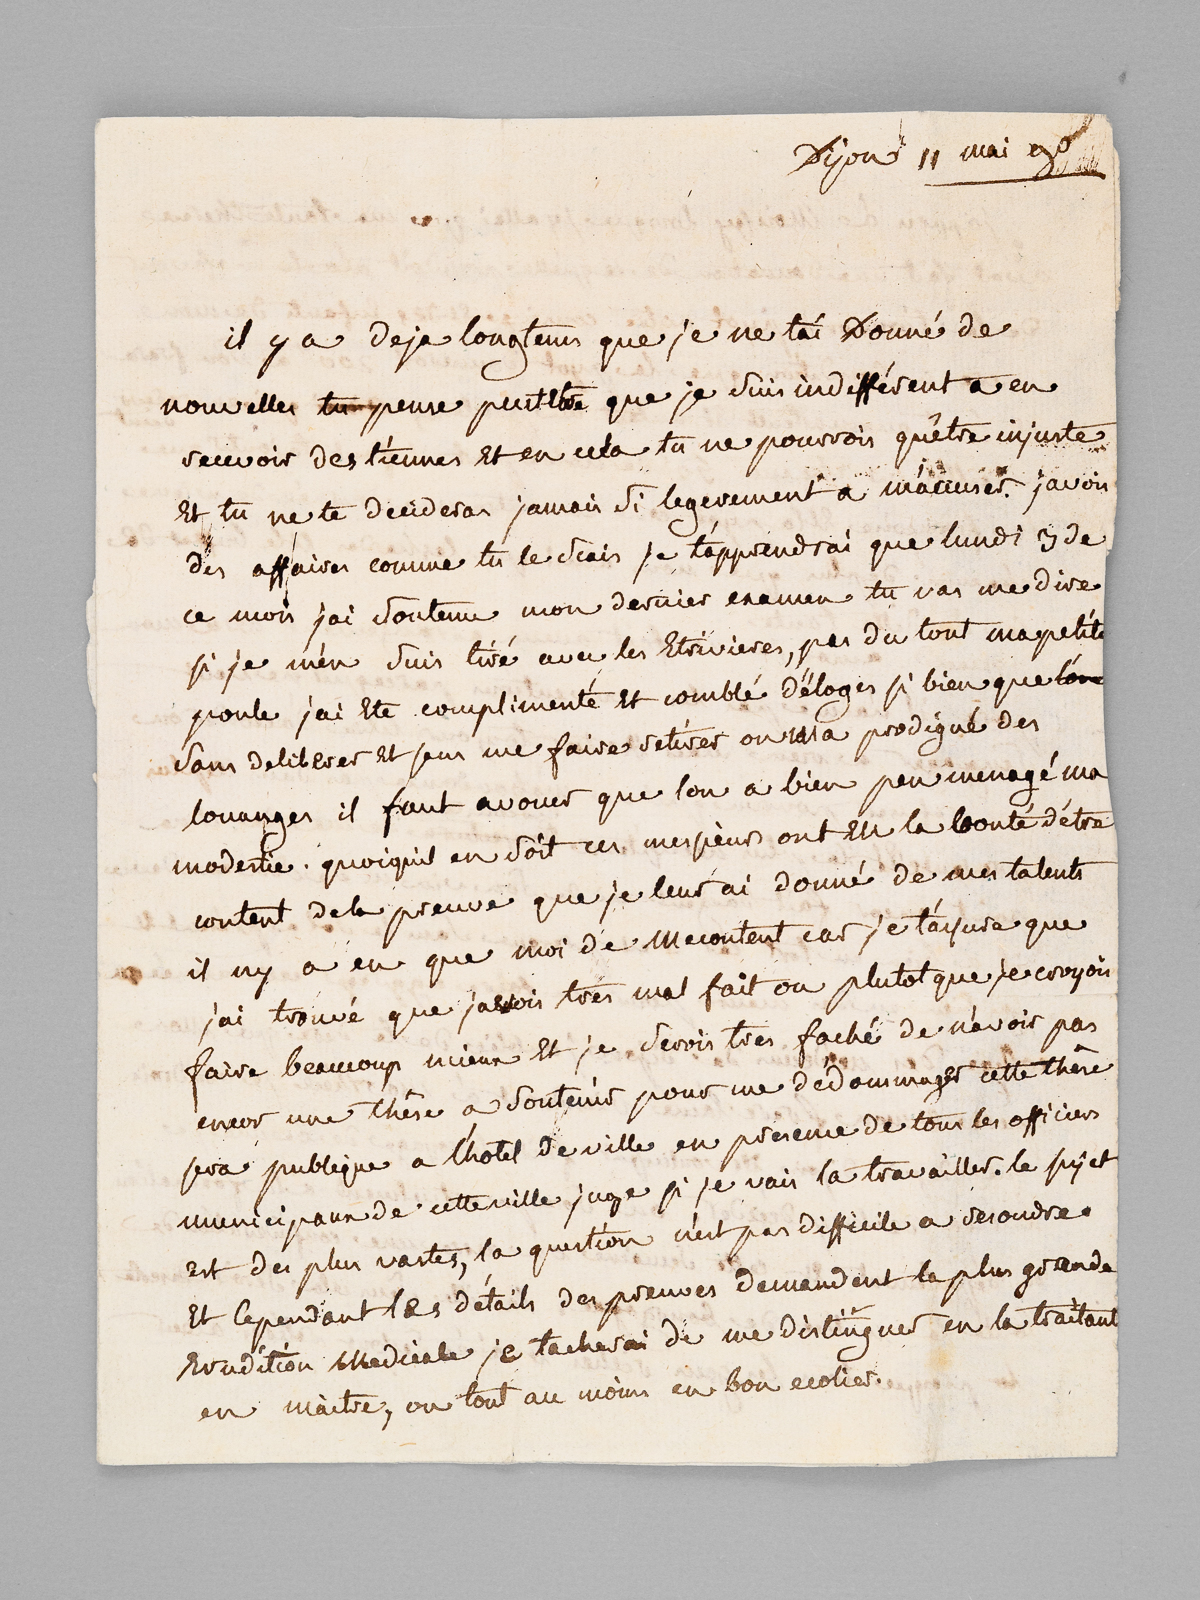 Dijon 11 mai 90
il y a deja longtems que je ne tai Donné de
nouvelles tu pense peutetre que je suis indifférent a en
recevoir des tiennes Et en cela tu ne pourrois qu'être injuste
Et tu ne te decideras jamais si legerement a m'accuser. j'avois
des affaires comme tu le scais je t'apprendrai que lundi 3 de
ce mois j'ai soutenu mon dernier examen tu vas me dire
si je m'en suis tiré avec les Etrivieres, pas du tout ma petite
poule j'ai Eté complimenté Et comblé d'éloges si bien que l'on
sans deliberer Et sans me faire retirer on m'a prodigué des
louanges il faut avouer que l'on a bien peu menagé ma
modestie. quoiquil en soit ces messieurs ont Eu la bonté d'être
content de la preuve que je leur ai donné de mes talents
il n'y a eu que moi de Mecontent car je t'assure que
j'ai trouvé que j'avois très mal fait ou plutot que je croyois
faire beaucoup mieux Et je serois tres faché de n'avoir pas
encor une thêse a soutenir pour me dédommager cette thêse
sera publique a l'hotel de ville en presence de tous les officiers
municipaux de cette ville juge si je vais la travailler. le sujet
Est des plus vastes, la question n'est pas difficile a resoudre
Et Cependant les détails des preuves demandent la plus grande
Erudition Medicale je tacherai de me distinguer en la traitant
en maitre, ou tout au moins en bon ecolier.